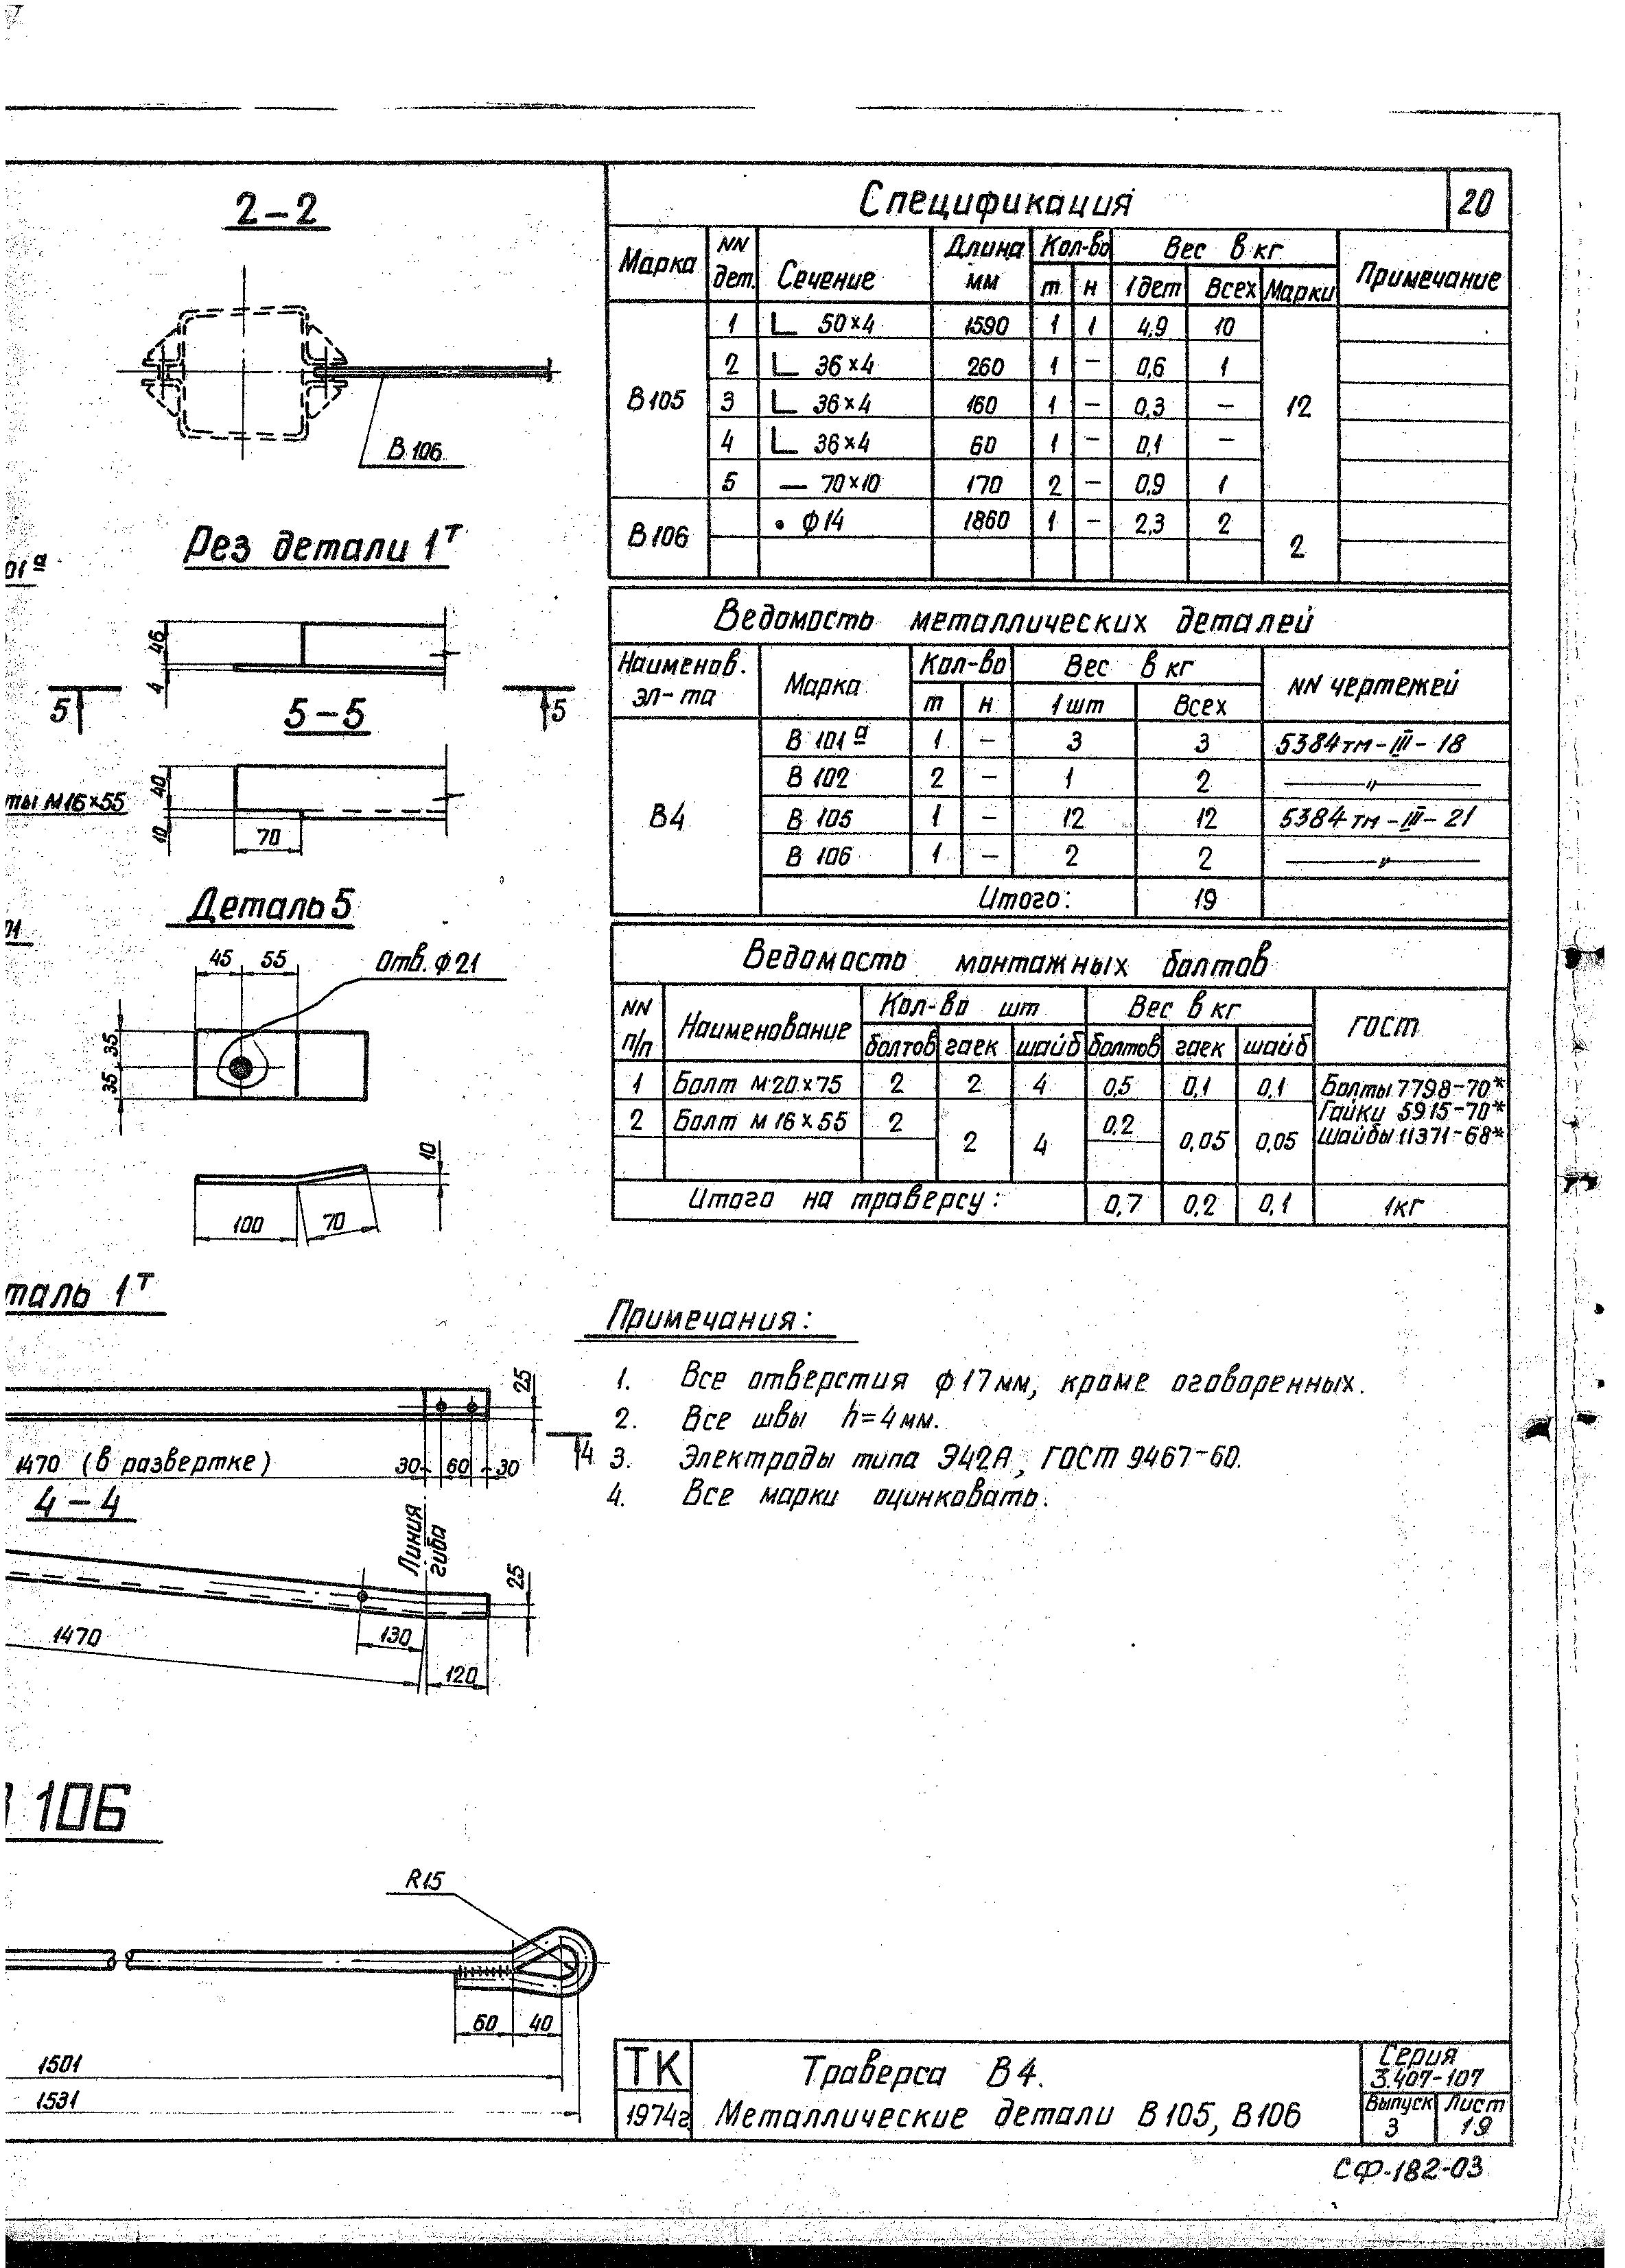 2-2
В 106
Рез детали 1т
01а
46
4
5
5
5-5
40
10
70
ты М16×55
Деталь 5
01
45 55
Отв. ф 21
35
35
10
100
70
таль 1т
25
1470 (в развертке)
30 60 30
4
4-4
Линия
гиба
25
1470
130
120
В 106
R15
60 40
1501
1531
Спецификация 20
Марка NN дет. Сечение Длина мм Кол-во Вес в кг Примечание
т н 1 дет Всех Марки
В105 1 L 50×4 1590 1 1 4,9 10 12
2 L 36×4 260 1 - 0,6 1
3 L 36×4 160 1 - 0,3 -
4 L 36×4 60 1 - 0,1 -
5 — 70×10 170 2 - 0,9 1
В106 • ф14 1860 1 - 2,3 2 2
Ведомость металлических деталей
Наименов. эл-та Марка Кол-во Вес в кг NN чертежей
т н 1 шт Всех
В4 В 101а 1 - 3 3 5384тм-III-18
В 102 2 - 1 2 —"—
В 105 1 - 12 12 5384тм-III-21
В 106 1 - 2 2 —"—
Итого: 19
Ведомость монтажных болтов
NN п/п Наименование Кол-во шт Вес в кг ГОСТ
болтов гаек шайб болтов гаек шайб
1 Болт М20×75 2 2 4 0,5 0,1 0,1 Болты 7798-70*
Гайки 5915-70*
2 Болт М16×55 2 2 4 0,2 0,05 0,05 Шайбы 11371-68*
Итого на траверсу: 0,7 0,2 0,1 1кг
Примечания:
1. Все отверстия ф 17мм, кроме оговоренных.
2. Все швы h=4мм.
3. Электроды типа Э42А, ГОСТ 9467-60.
4. Все марки оцинковать.
ТК
1974г
Траверса В4.
Металлические детали В105, В106
Серия
3.407-107
Выпуск Лист
3 19
СФ-182-03